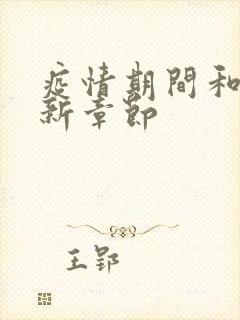 疫情期間和
新章節
王郢